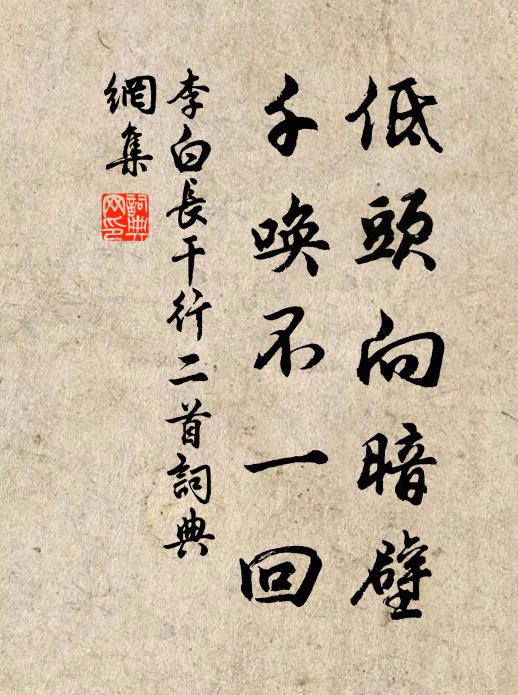 低頭向暗壁
千喚不一回
李白長干行二首詞典
網集
詞典網印